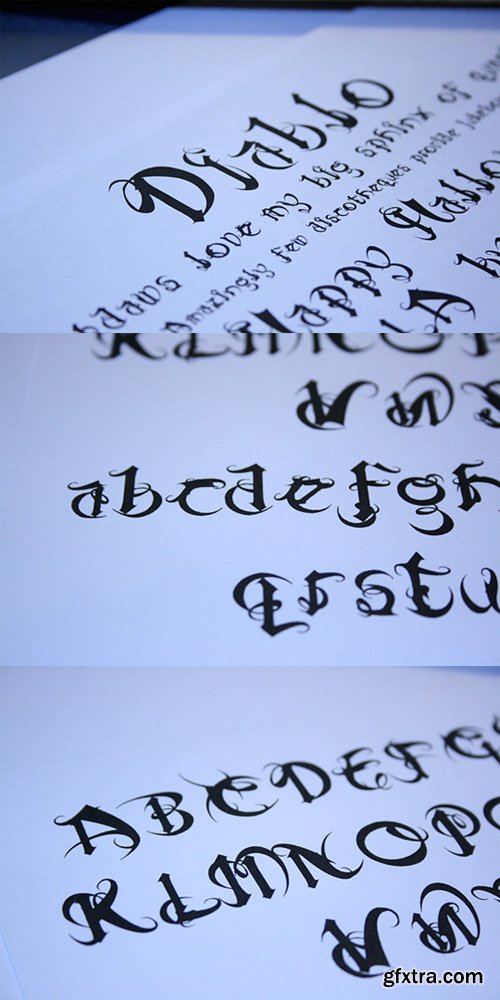 Diablo
love my big sphinx of
Amazingly few discotheques provide
Happy
A
KLMNOP
V W
abcdefgh
qrstu
ABCDEFG
KLMNOPQ
V W
gfxtra.com